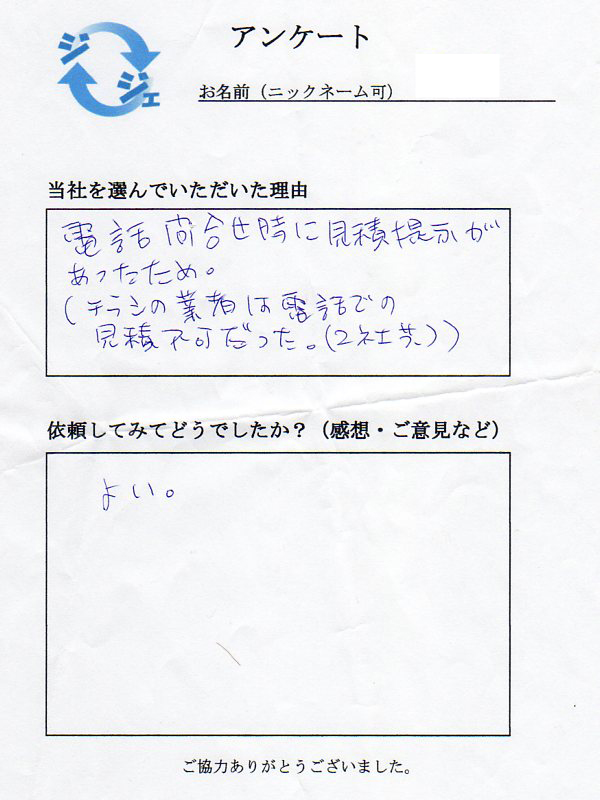 ジジェ
アンケート
お名前（ニックネーム可）
当社を選んでいただいた理由
電話問合せ時に見積提示が
あったため。
(チラシの業者は電話での
見積不可だった。(2社共))
依頼してみてどうでしたか？（感想・ご意見など）
よい。
ご協力ありがとうございました。